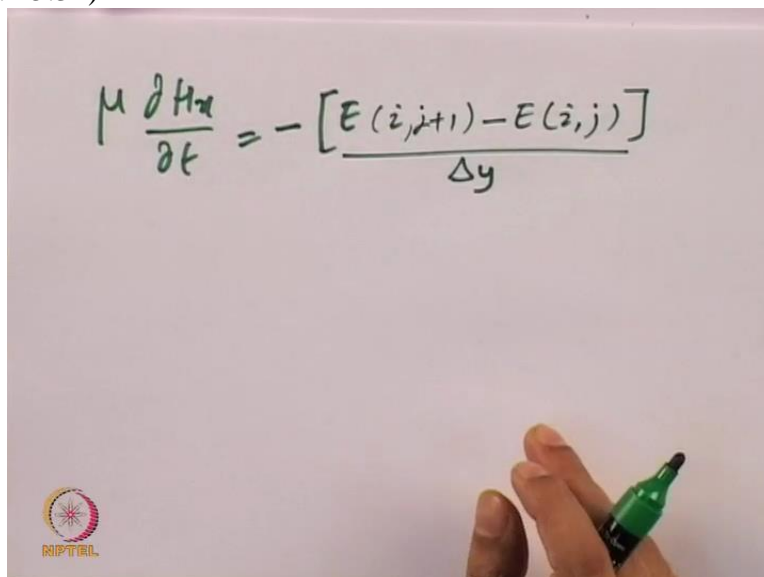 μ ∂Hx/∂t = - [E(i,j+1) - E(i,j)]/Δy
NPTEL